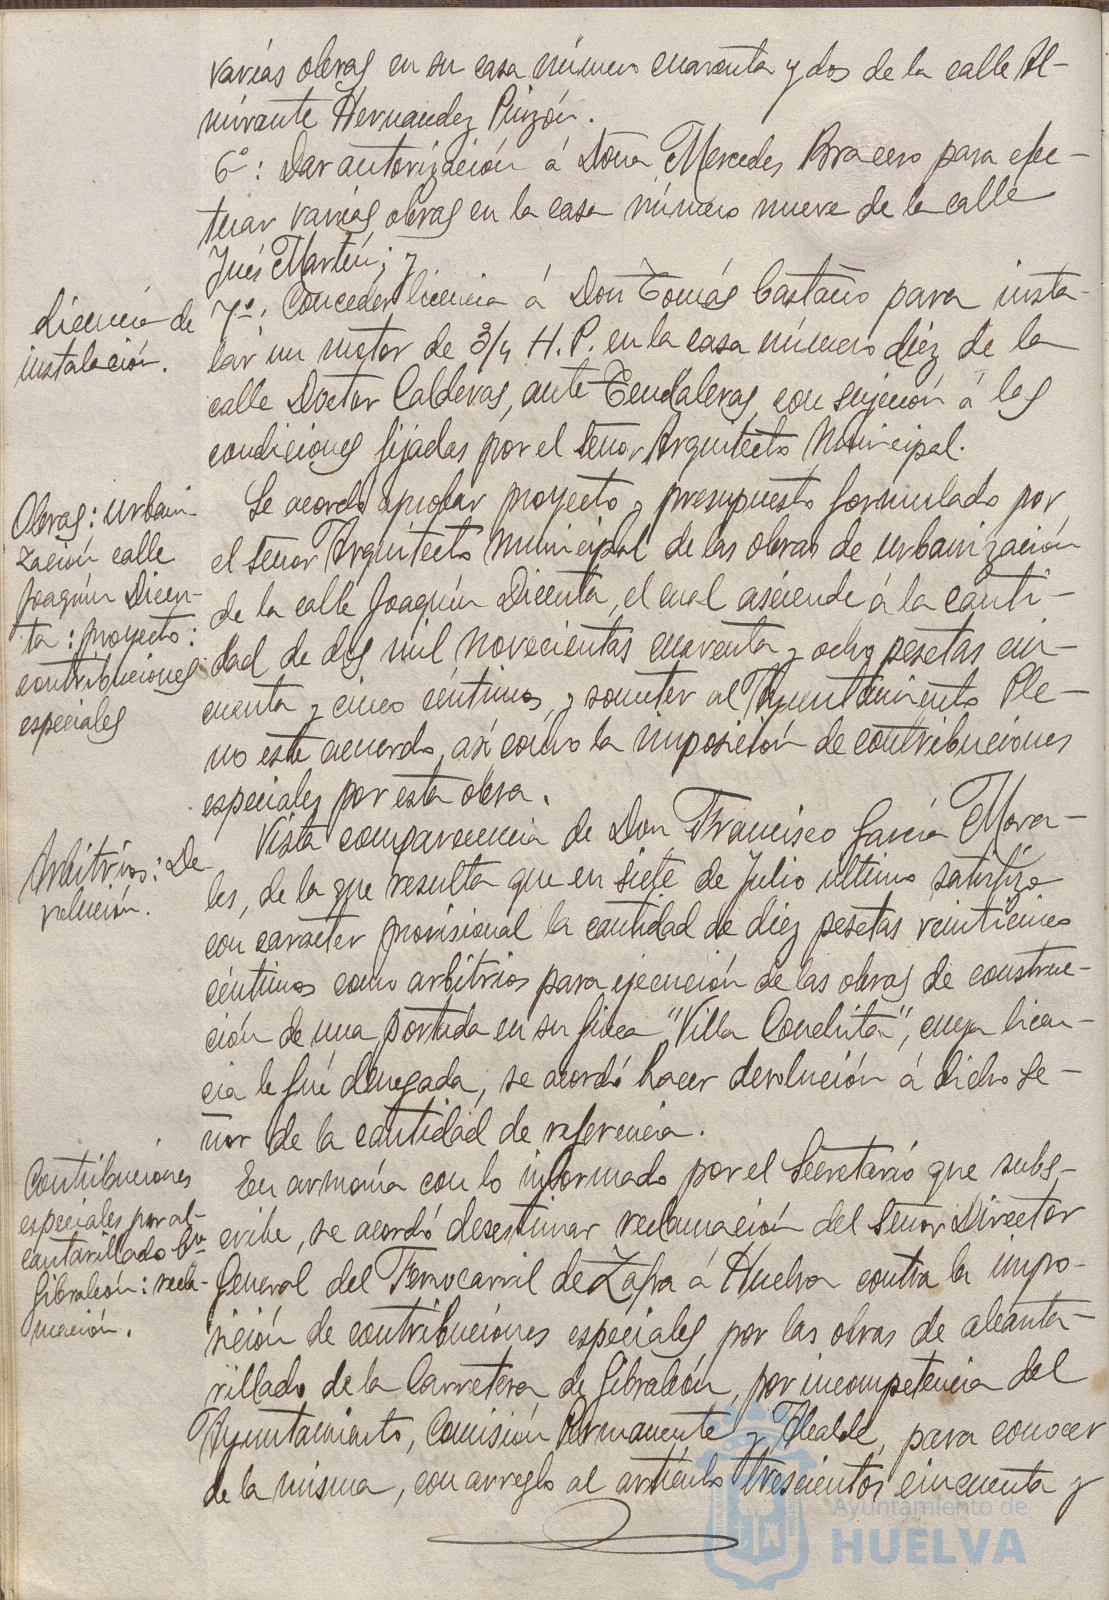 varias obras en su casa número cuarenta y dos de la calle Al-
mirante Hernandez Pinzón.
6º: Dar autorización á Doña Mercedes Bracero para efec-
tuar varias obras en la casa número nueve de la calle
Inés Martín; y
Licencia de
instalación.
7º: Conceder licencia á Don Tomás Castaño para insta-
lar un motor de 3/4 H.P. en la casa número diez de la
calle Doctor Calderas, ante Tendaleras, con sujeción á las
condiciones fijadas por el Señor Arquitecto Municipal.
Obras: urbani-
zación calle
Joaquín Dicen-
ta: proyecto:
contribuciones
especiales
Se acordó aprobar proyecto y presupuesto formulado por
el Señor Arquitecto Municipal de las obras de urbanización
de la calle Joaquín Dicenta, el cual asciende á la canti-
dad de dos mil novecientas cuarenta y ocho pesetas cin-
cuenta y cinco céntimos, y someter al Ayuntamiento Ple-
no este acuerdo, así como la imposición de contribuciones
especiales por esta obra.
Arbitrios: De-
volución.
Vista comparecencia de Don Francisco García Mora-
les, de la que resulta que en siete de Julio último satisfizo
con caracter provisional la cantidad de diez pesetas veinticinco
céntimos como arbitrios para ejecución de las obras de construc-
ción de una portada en su finca "Villa Conchita", cuya licen-
cia le fué denegada, se acordó hacer devolución á dicho Se-
ñor de la cantidad de referencia.
Contribuciones
especiales por al-
cantarillado Crª
Gibraleón: recla-
mación.
En armonía con lo informado por el Secretario que subs-
cribe, se acordó desestimar reclamación del Señor Director
General del Ferrocarril de Zafra á Huelva contra la impo-
sición de contribuciones especiales, por las obras de alcanta-
rillado de la Carretera de Gibraleón, por incompetencia del
Ayuntamiento, Comisión Permanente y Alcalde, para conocer
de la misma, con arreglo al artículo trescientos cincuenta y
Ayuntamiento de
HUELVA